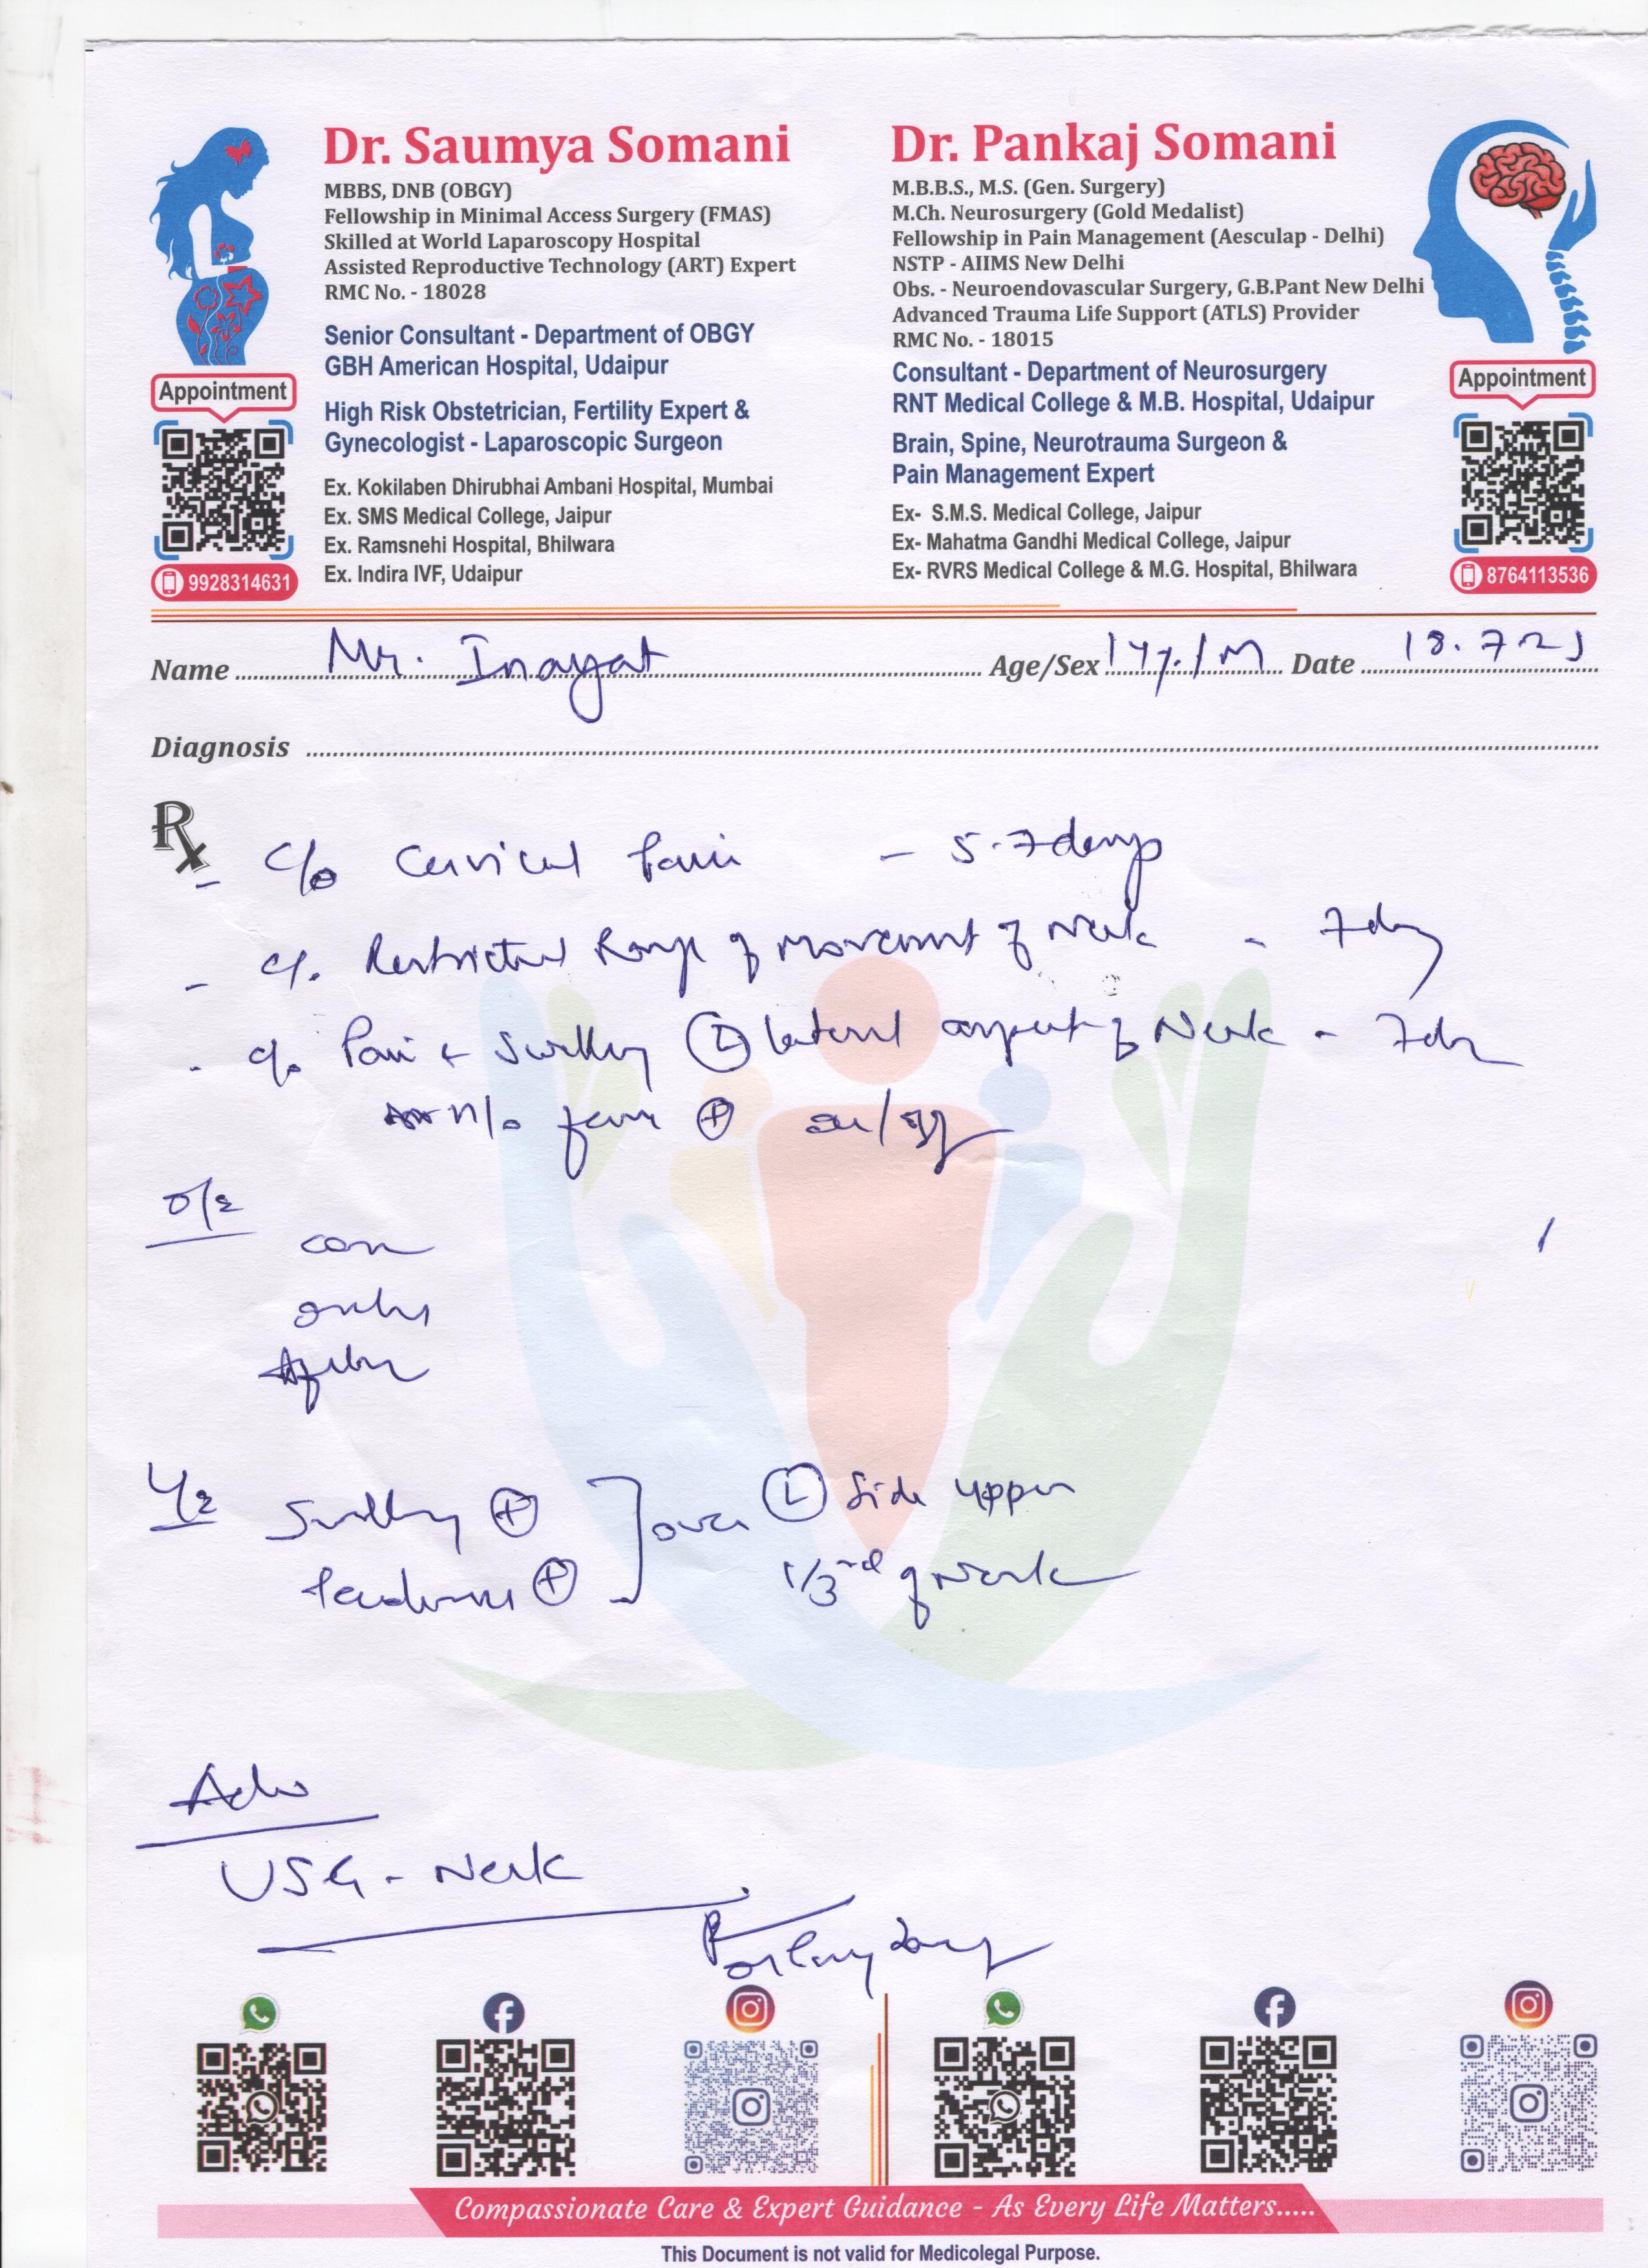 Dr. Saumya Somani
MBBS, DNB (OBGY)
Fellowship in Minimal Access Surgery (FMAS)
Skilled at World Laparoscopy Hospital
Assisted Reproductive Technology (ART) Expert
RMC No. - 18028
Senior Consultant - Department of OBGY
GBH American Hospital, Udaipur
High Risk Obstetrician, Fertility Expert &
Gynecologist - Laparoscopic Surgeon
Ex. Kokilaben Dhirubhai Ambani Hospital, Mumbai
Ex. SMS Medical College, Jaipur
Ex. Ramsnehi Hospital, Bhilwara
Ex. Indira IVF, Udaipur
Appointment
9928314631
Dr. Pankaj Somani
M.B.B.S., M.S. (Gen. Surgery)
M.Ch. Neurosurgery (Gold Medalist)
Fellowship in Pain Management (Aesculap - Delhi)
NSTP - AIIMS New Delhi
Obs. - Neuroendovascular Surgery, G.B.Pant New Delhi
Advanced Trauma Life Support (ATLS) Provider
RMC No. - 18015
Consultant - Department of Neurosurgery
RNT Medical College & M.B. Hospital, Udaipur
Brain, Spine, Neurotrauma Surgeon &
Pain Management Expert
Ex- S.M.S. Medical College, Jaipur
Ex- Mahatma Gandhi Medical College, Jaipur
Ex- RVRS Medical College & M.G. Hospital, Bhilwara
Appointment
8764113536
Name Mr. Inayat Age/Sex 14y./M Date 18.7.25
Diagnosis
Rx
- c/o Cervical Pain - 5-7days
- c/o Restricted Range of Movement of Neck - 7day
- c/o Pain & Swelling (L) lateral aspect of Neck - 7day
H/o fever (+) on/off
O/E
con
Afebr
L/E Swelling (+) ] over (L) Side upper
tenderness (+) 1/3rd of Neck
Adv
USG - Neck
Compassionate Care & Expert Guidance - As Every Life Matters.....
This Document is not valid for Medicolegal Purpose.